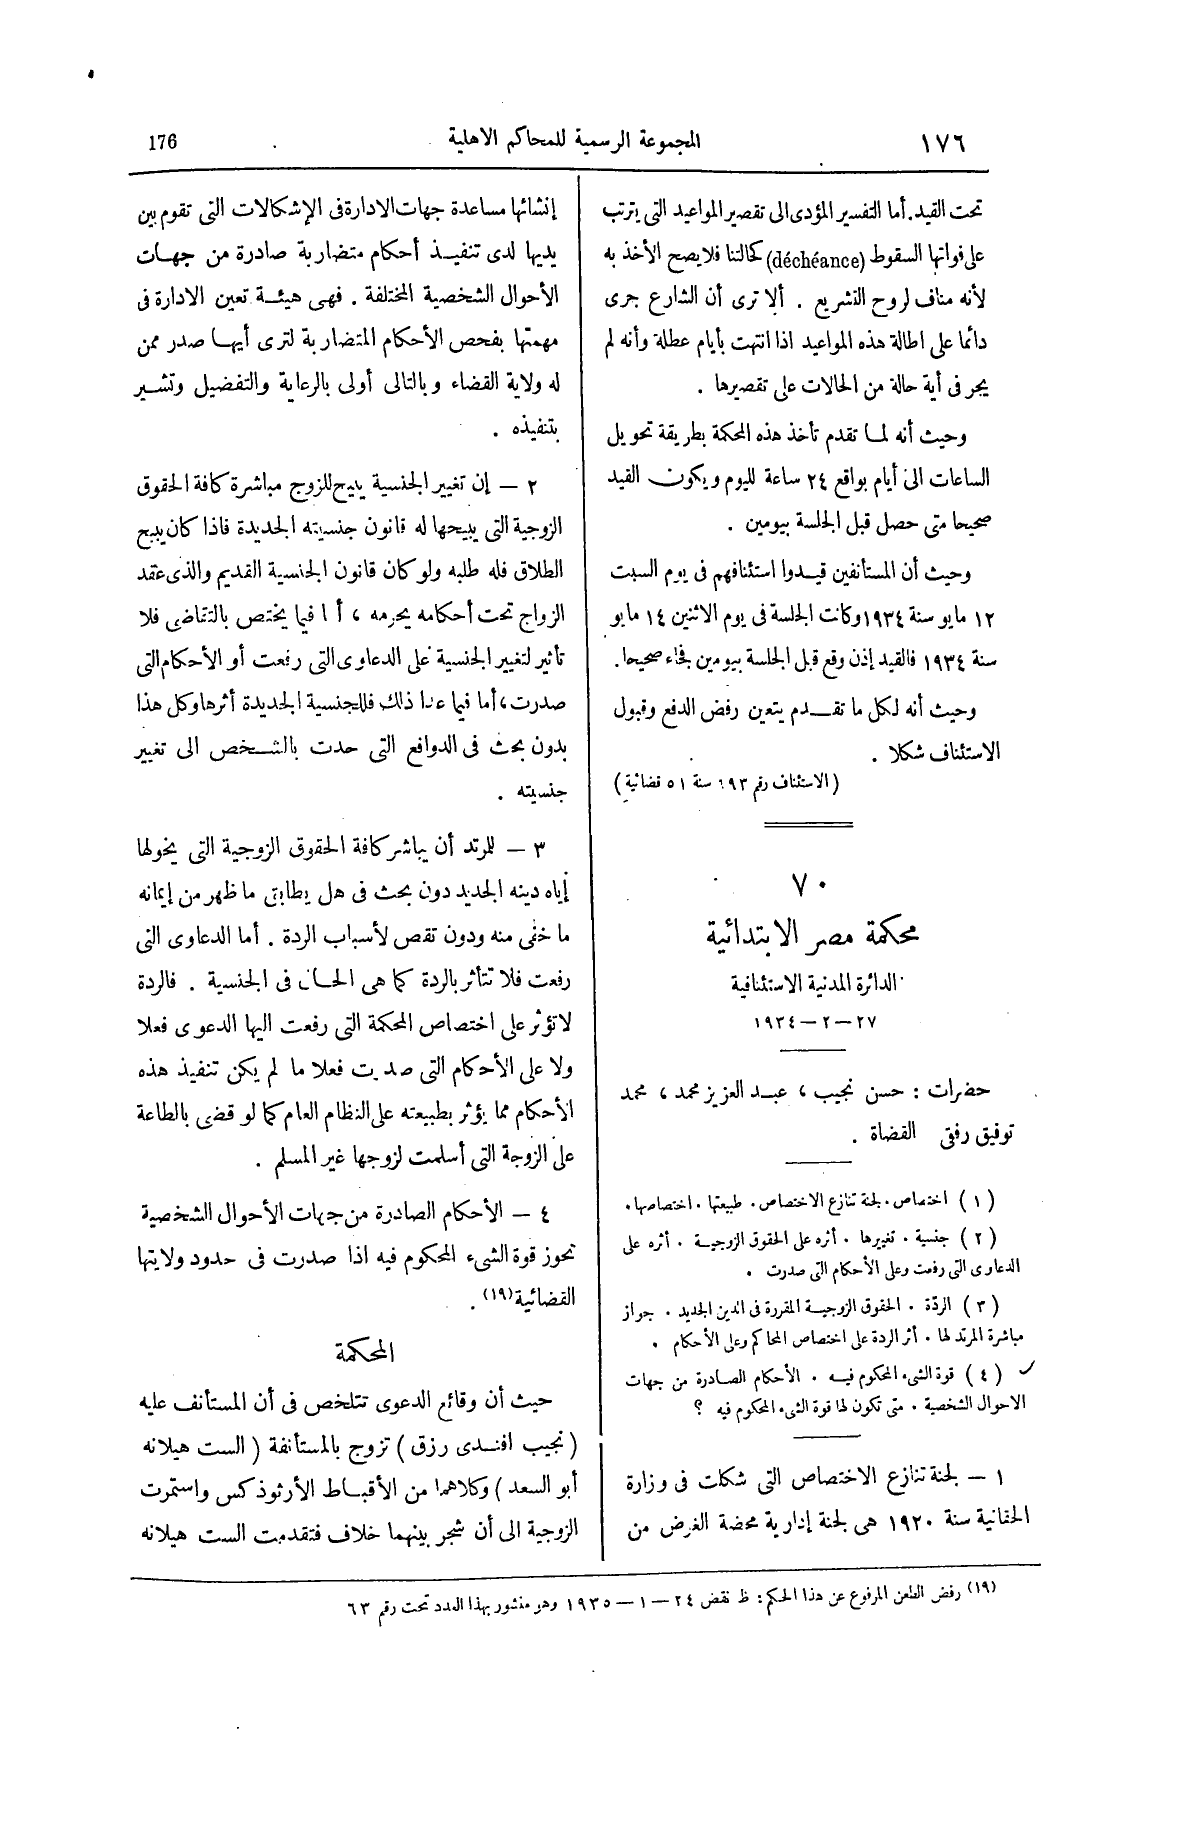 ١٧٦
المجموعة الرسمية للمحاكم الاهلية
176
تحت القيد. أما التفسير المؤدى الى تقصير المواعيد التى يترتب
على فواتها السقوط (déchéance) كحالتنا فلا يصح الأخذ به
لأنه مناف لروح التشريع . ألا ترى أن الشارع جرى
دائما على اطالة هذه المواعيد اذا انتهت بأيام عطلة وأنه لم
يجر فى أية حالة من الحالات على تقصيرها .
وحيث أنه لما تقدم تأخذ هذه المحكمة بطريقة تحويل
الساعات الى أيام بواقع ٢٤ ساعة لليوم ويكون القيد
صحيحا متى حصل قبل الجلسة بيومين .
وحيث أن المستأنفين قيدوا استئنافهم فى يوم السبت
١٢ مايو سنة ١٩٣٤ وكانت الجلسة فى يوم الاثنين ١٤ مايو
سنة ١٩٣٤ فالقيد إذن وقع قبل الجلسة بيومين فجاء صحيحا.
وحيث أنه لكل ما تقدم يتعين رفض الدفع وقبول
الاستئناف شكلا .
(الاستئناف رقم ١٩٣ سنة ٥١ قضائية)
٧٠
محكمة مصر الابتدائية
الدائرة المدنية الاستئنافية
٢٧ — ٢ — ١٩٣٤
حضرات : حسن نجيب ، عبد العزيز محمد ، محمد
توفيق رفقى القضاة .
(١) اختصاص. لجنة تنازع الاختصاص. طبيعتها. اختصاصها.
(٢) جنسية . تغييرها . أثره على الحقوق الزوجية . أثره على
الدعاوى التى رفعت وعلى الأحكام التى صدرت .
(٣) الردّة . الحقوق الزوجية المقررة فى الدين الجديد . جواز
مباشرة المرتد لها . أثر الردة على اختصاص المحاكم وعلى الأحكام .
(٤) قوة الشىء المحكوم فيه . الأحكام الصادرة من جهات
الاحوال الشخصية . متى تكون لها قوة الشىء المحكوم فيه ؟
١ — لجنة تنازع الاختصاص التى شكلت فى وزارة
الحقانية سنة ١٩٢٠ هى لجنة إدارية محضة الغرض من
إنشائها مساعدة جهات الادارة فى الإشكالات التى تقوم بين
يديها لدى تنفيذ أحكام متضاربة صادرة من جهات
الأحوال الشخصية المختلفة . فهى هيئة تعين الادارة فى
مهمتها بفحص الأحكام المتضاربة لترى أيها صدر ممن
له ولاية القضاء وبالتالى أولى بالرعاية والتفضيل وتشير
بتنفيذه .
٢ — إن تغيير الجنسية يتيح للزوج مباشرة كافة الحقوق
الزوجية التى يبيحها له قانون جنسيته الجديدة فاذا كان يبيح
الطلاق فله طلبه ولو كان قانون الجنسية القديم والذى عقد
الزواج تحت أحكامه يحرمه ، أما فيما يختص بالتقاضى فلا
تأثير لتغيير الجنسية على الدعاوى التى رفعت أو الأحكام التى
صدرت، أما فيما عدا ذلك فللجنسية الجديدة أثرها وكل هذا
بدون بحث فى الدوافع التى حدت بالشخص الى تغيير
جنسيته .
٣ — للمرتد أن يباشر كافة الحقوق الزوجية التى يخولها
إياه دينه الجديد دون بحث فى هل يطابق ما ظهر من إيمانه
ما خفى منه ودون تقص لأسباب الردة . أما الدعاوى التى
رفعت فلا تتأثر بالردة كما هى الحال فى الجنسية . فالردة
لا تؤثر على اختصاص المحكمة التى رفعت اليها الدعوى فعلا
ولا على الأحكام التى صدرت فعلا ما لم يكن تنفيذ هذه
الأحكام مما يؤثر بطبيعته على النظام العام كما لو قضى بالطاعة
على الزوجة التى أسلمت لزوجها غير المسلم .
٤ — الأحكام الصادرة من جهات الأحوال الشخصية
تحوز قوة الشىء المحكوم فيه اذا صدرت فى حدود ولايتها
القضائية (١٩) .
المحكمة
حيث أن وقائع الدعوى تتلخص فى أن المستأنف عليه
(نجيب افندى رزق) تزوج بالمستأنفة (الست هيلانه
أبو السعد) وكلاهما من الأقباط الأرثوذكس واستمرت
الزوجية الى أن شجر بينهما خلاف فتقدمت الست هيلانه
(١٩) رفض الطعن المرفوع عن هذا الحكم: ظ نقض ٢٤ — ١ — ١٩٣٥ وهو منشور بهذا العدد تحت رقم ٦٣